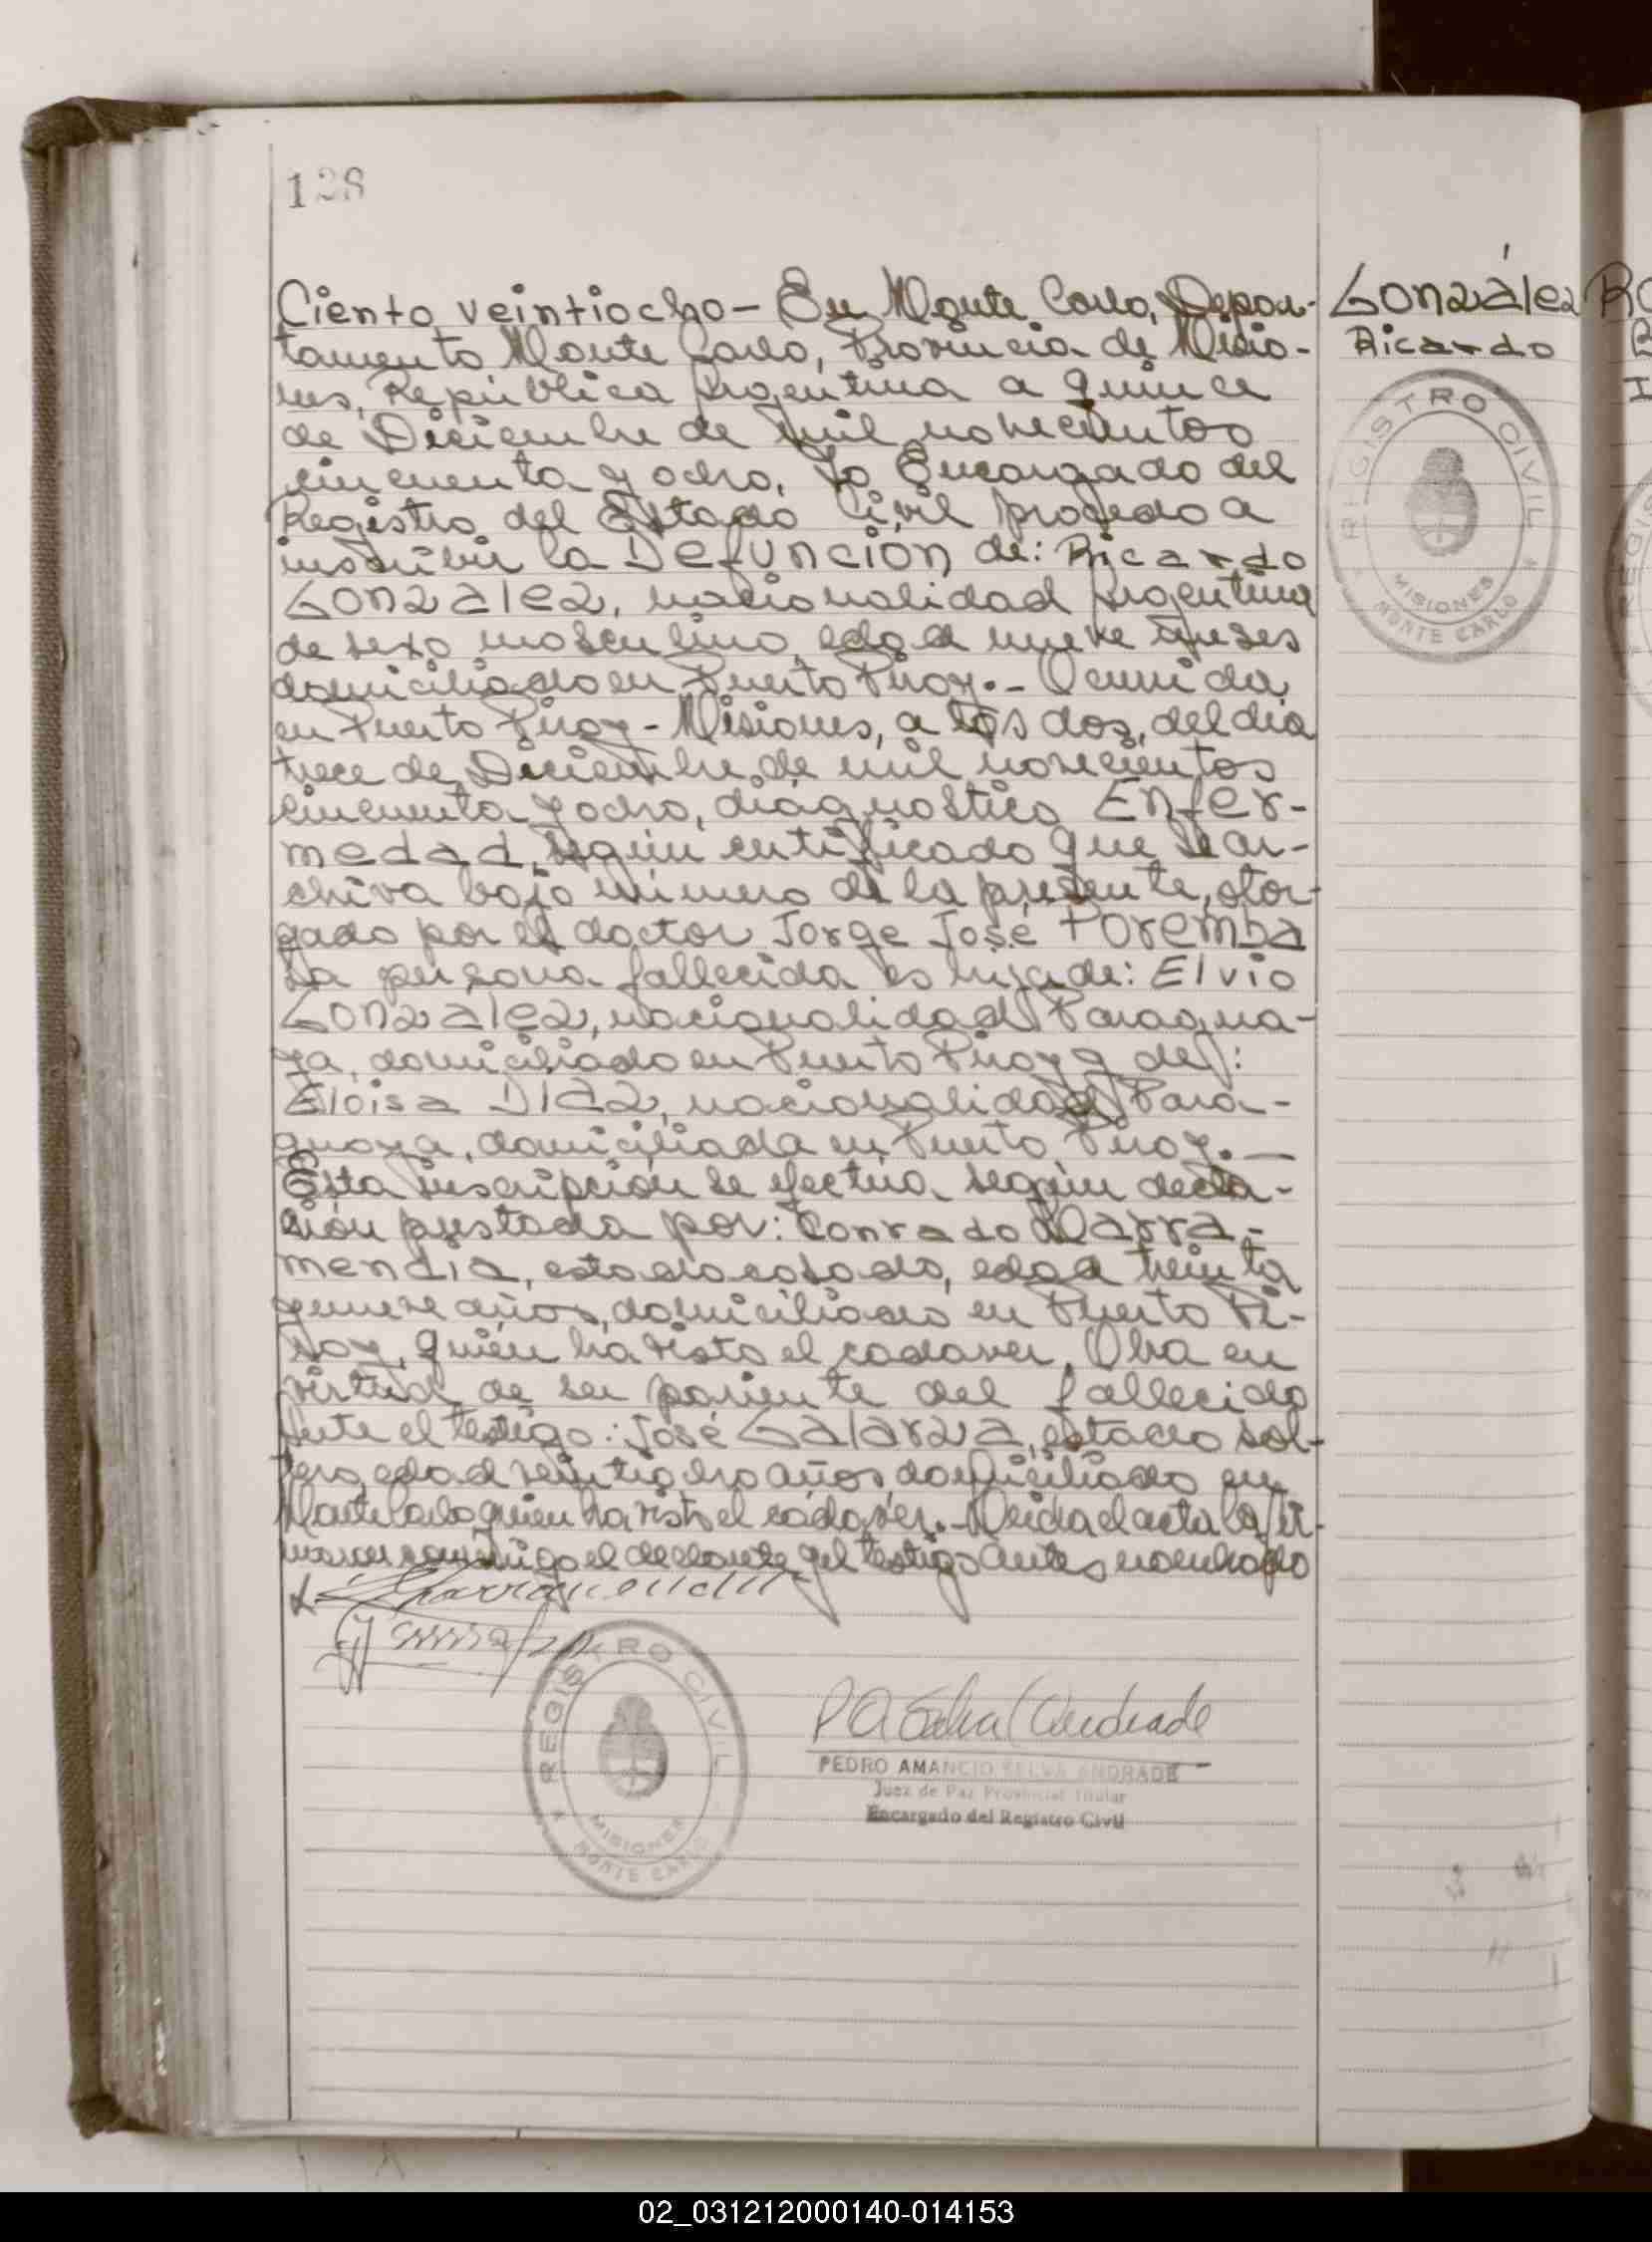 128
Ciento veintiocho - En Monte Carlo, Depar-
tamento Monte Carlo, Provincia de Misio-
nes, República Argentina a quince
de Diciembre de mil novecientos
cincuenta y ocho. Yo Encargado del
Registro del Estado Civil procedo a
inscribir la Defunción de: Ricardo
González, nacionalidad Argentina
de sexo masculino, edad nueve meses
domiciliado en Puerto Piray.- Ocurrida
en Puerto Piray - Misiones, a las dos, del día
trece de Diciembre de mil novecientos
cincuenta y ocho, diagnóstico Enfer-
medad, según certificado que se ar-
chiva bajo número de la presente, otor-
gado por el doctor Jorge José Poremba
La persona fallecida es hija de: Elvio
González, nacionalidad Paragua-
ya, domiciliado en Puerto Piray y de:
Eloisa Diaz, nacionalidad Para-
guaya, domiciliada en Puerto Piray.-
Esta inscripción se efectúa según decla-
ción prestada por: Conrado Marra-
mendia, estado casado, edad treinta
y nueve años, domiciliado en Puerto Pi-
ray, quién ha visto el cadaver. Obra en
virtud de ser pariente del fallecido
Ante el testigo: José Galarza, estado sol-
tero, edad veintiocho años, domiciliado en
Monte Carlo quien ha visto el cadáver.- Leída el acta la fir-
man conmigo el declarante y el testigo antes nombrado
PEDRO AMANCIO SELVA ANDRADE
Juez de Paz Provincial Titular
Encargado del Registro Civil
REGISTRO CIVIL
MISIONES
MONTE CARLO
González
Ricardo
REGISTRO CIVIL
MISIONES
MONTE CARLO
02_031212000140-014153